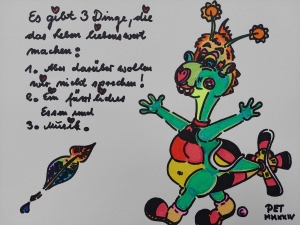 Es gibt 3 Dinge, die
das Leben liebenswert
machen:
1. Aber darüber wollen
wir nicht sprechen!
2. Ein fürstliches
Essen und
3. Musik.
PET
MMXXIV